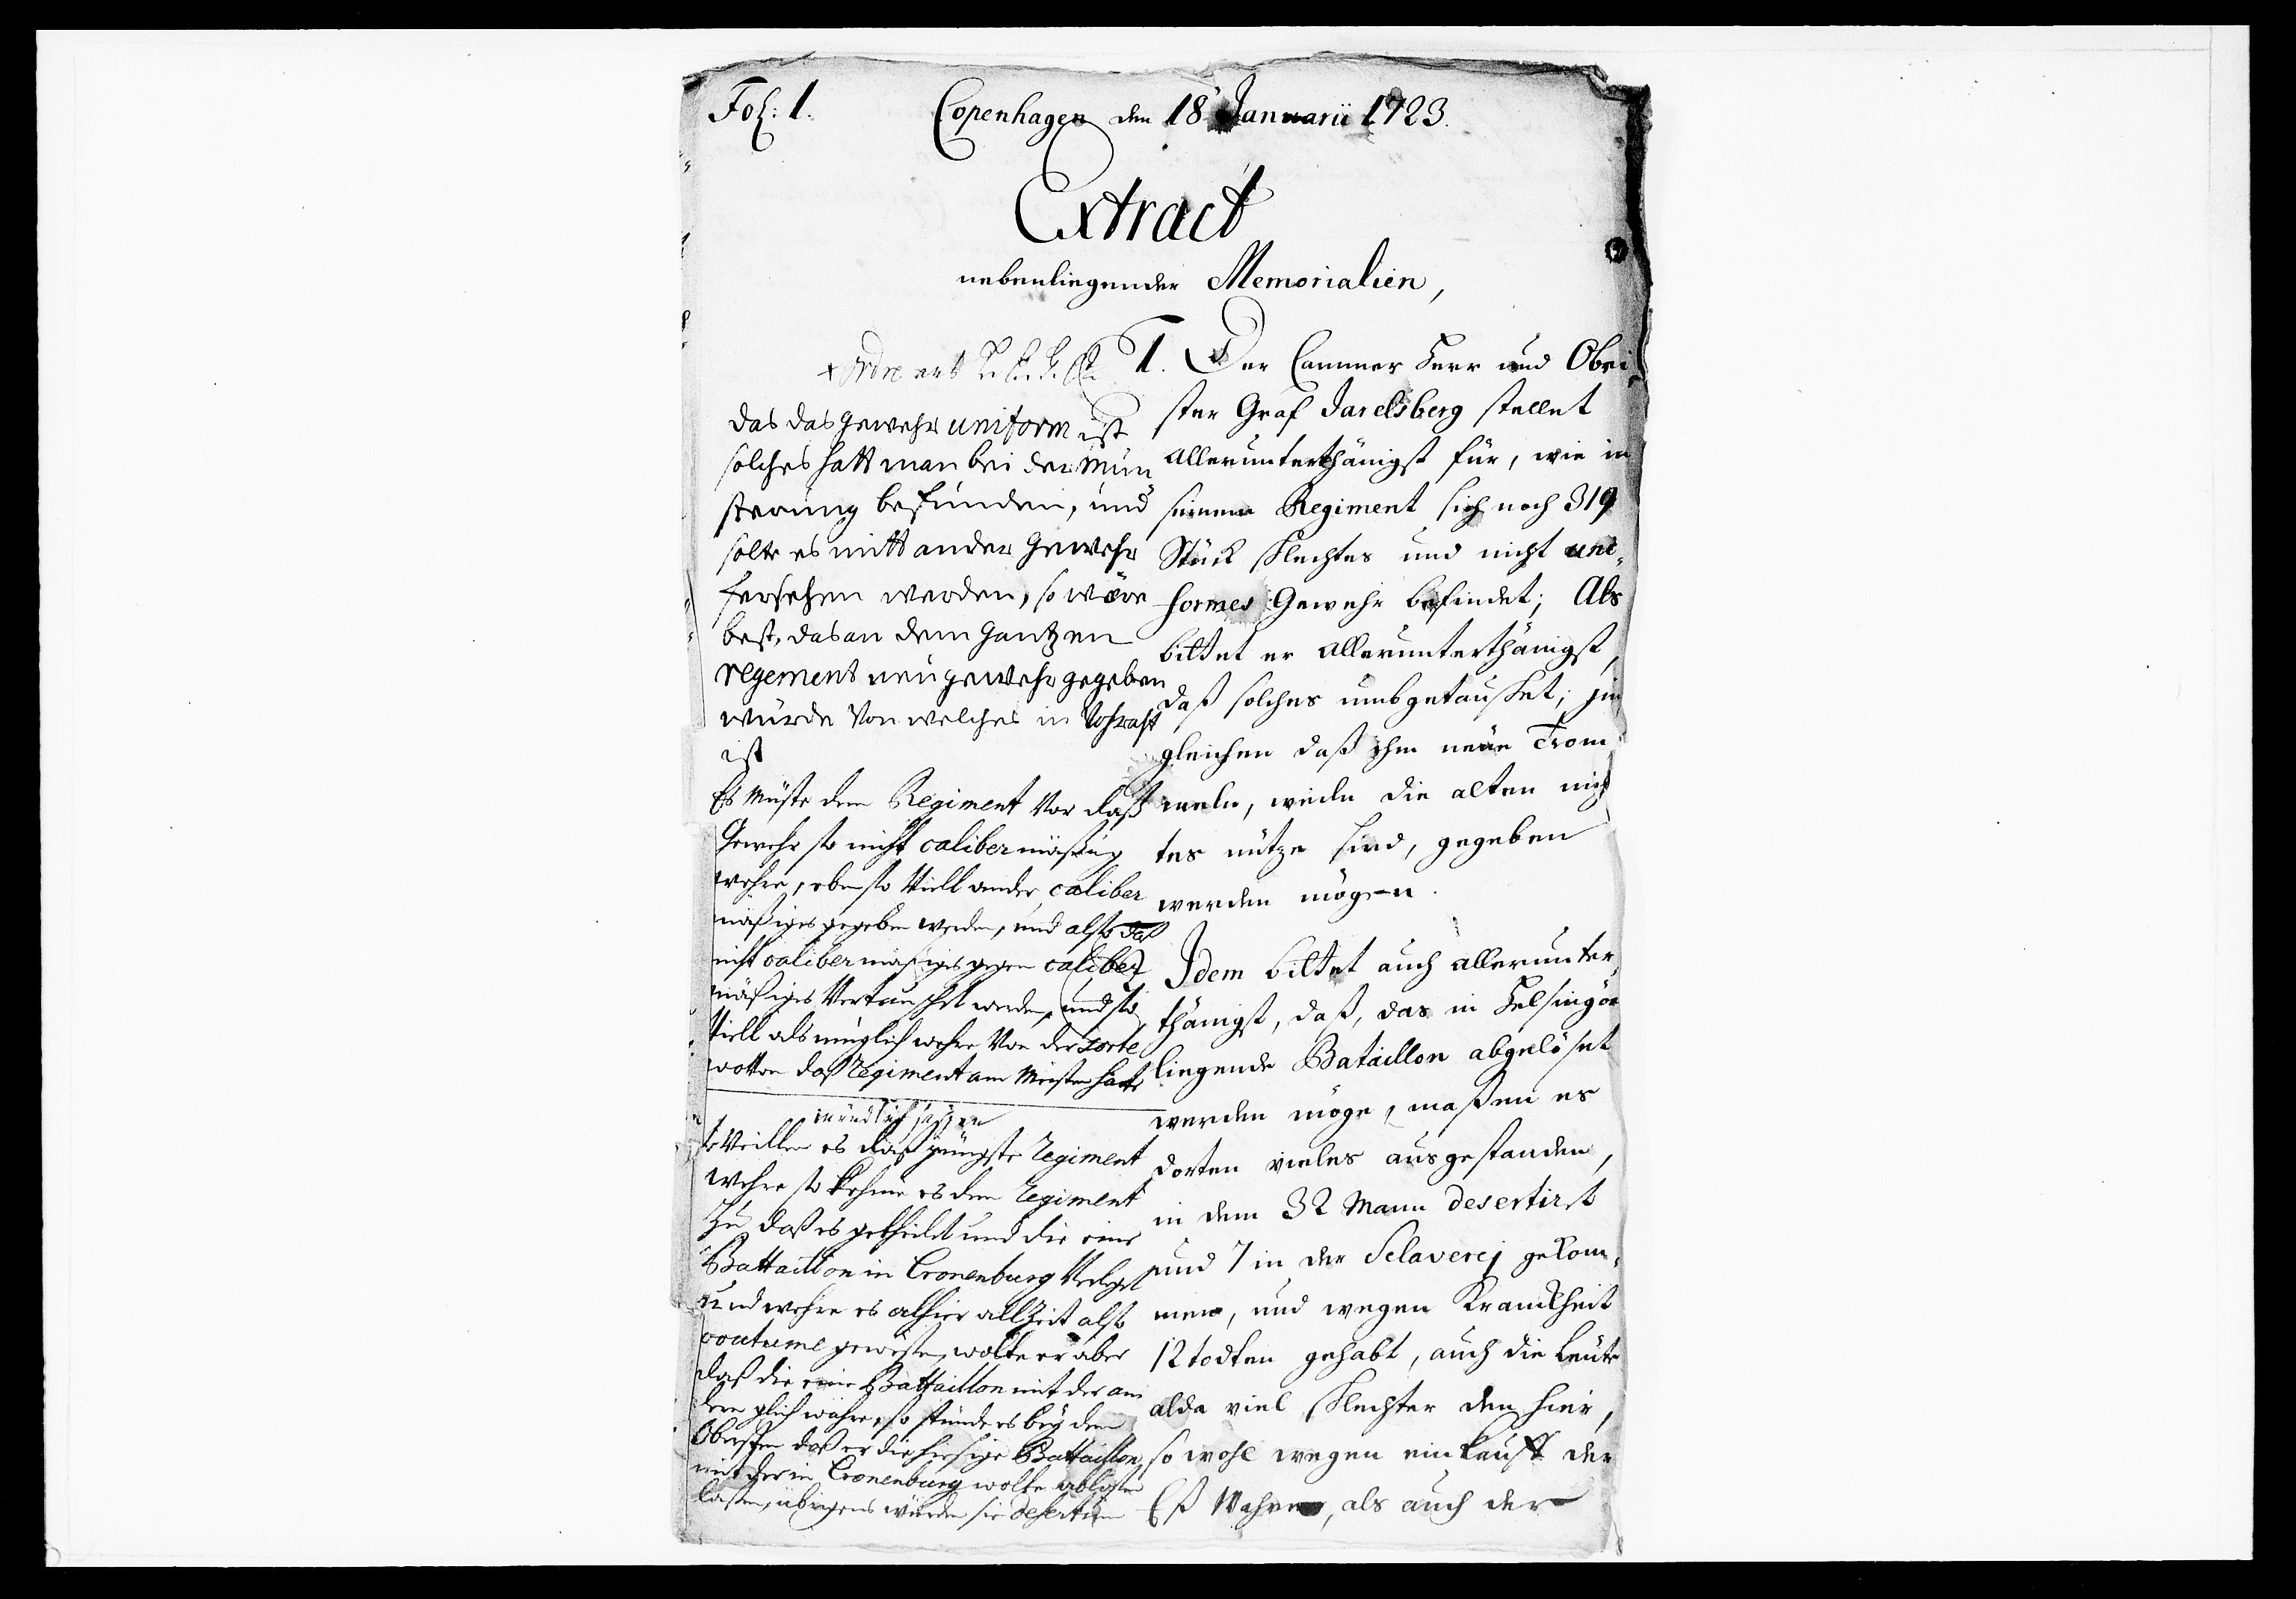 Fol: 1. Copenhagen den 18 Januarii 1723.
Extract
nebenliegender Memorialien,
1. Der Cammer Herr und Obri
ster Graf Jarelsberg stellet
allerunterthänigst für, wie in
seinem Regiment sich noch 319
Stück schlechtes und nicht uni-
formes Gewehr befindet; Als
bittet er allerunterthänigst,
daß solches umbgetauschet; im
gleichen daß ihm neüe Trom
meln, weiln die alten nich
tes nütze sind, gegeben
werden mögen.
Idem bittet auch allerunter
thänigst, daß, das in Helsingör
liegende Bataillon abgelöset
werden möge, maßen es
dorten vieles ausgestanden,
in dem 32 Mann desertirt
und 7 in der Sclaverej gekom-
men, und wegen Kranckheit
12 todten gehabt, auch die Leüte
alda viel schlechter den hier,
so wohl wegen einkaufft der
Eß Wahren, als auch der
+ Ordre
das das gewehr uniform ist
solches hatt man bei der Mun
sterung befunden, und
solte es mitt ander gewehr
fersehen werden, so wäre
best, das an dem gantzen
regement neu gewehr gegeben
würde von welches in Vohraht
ist
Es müste dem Regiment vor daß
Gewehr so nicht caliber mäßig
wehre, eben so viell ander caliber
mäßiges gegeben werden, und also daß
nicht caliber mäßiges gegen caliber
mäßiges vertauschet werden, und so
viell als müglich wehre von der sorte
wovon daß Regiment am Meisten hatt
mündlich sagen
+ Weillen es daß jüngste Regiment
wehre so kehme es dem Regiment
zu daß es getheilet und die eine
Battaillon in Cronenburg verlegt
und wehre es alhier allzeit also
coutume gewesen, wolte er aber
daß die eine Battaillon mit der an
dern glich wahre, so stünde es bey dem
Obersten daß er die hiesige Battaillon
mit der in Cronenburg wolte ablösen
laßen, übrigens würden sie desertirn